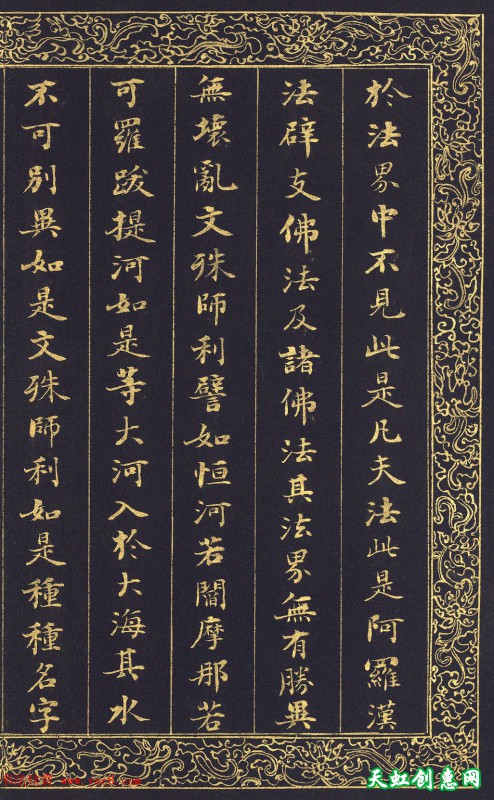 於法界中不見此是凡夫法此是阿羅漢
法辟支佛法及諸佛法其法界無有勝異
無壞亂文殊師利譬如恒河若閻摩那若
可羅跋提河如是等大河入於大海其水
不可別異如是文殊師利如是種種名字
天虹创惠网